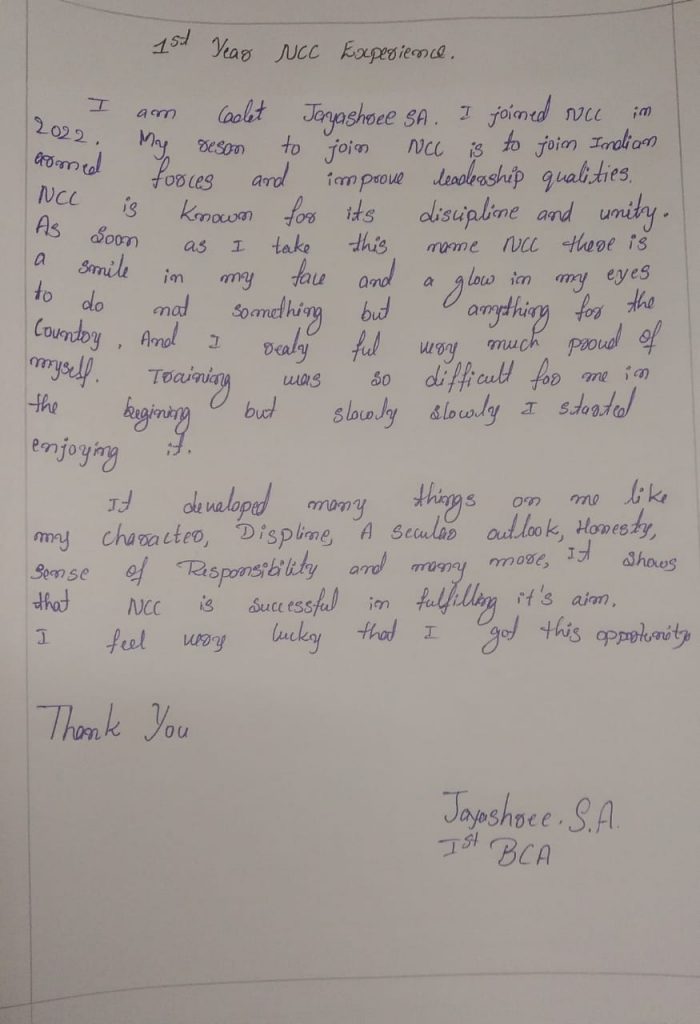 1st Year NCC Experience.
I am Cadet Jayashree SA. I joined NCC in
2022. My reson to join NCC is to join Indian
armed forces and improve leadership qualities.
NCC is known for its discipline and unity.
As soon as I take this name NCC there is
a smile in my face and a glow in my eyes
to do not something but anything for the
Country. And I realy ful very much proud of
myself. Training was so difficult for me in
the begining but slowly slowly I started
enjoying it.
It developed many things on me like
my character, Displine, A secular outlook, Honesty,
sense of Responsibility and many more, It shows
that NCC is successful in fulfilling it's aim.
I feel very lucky that I got this opportunity
Thank You
Jayashree. S.A.
Ist BCA